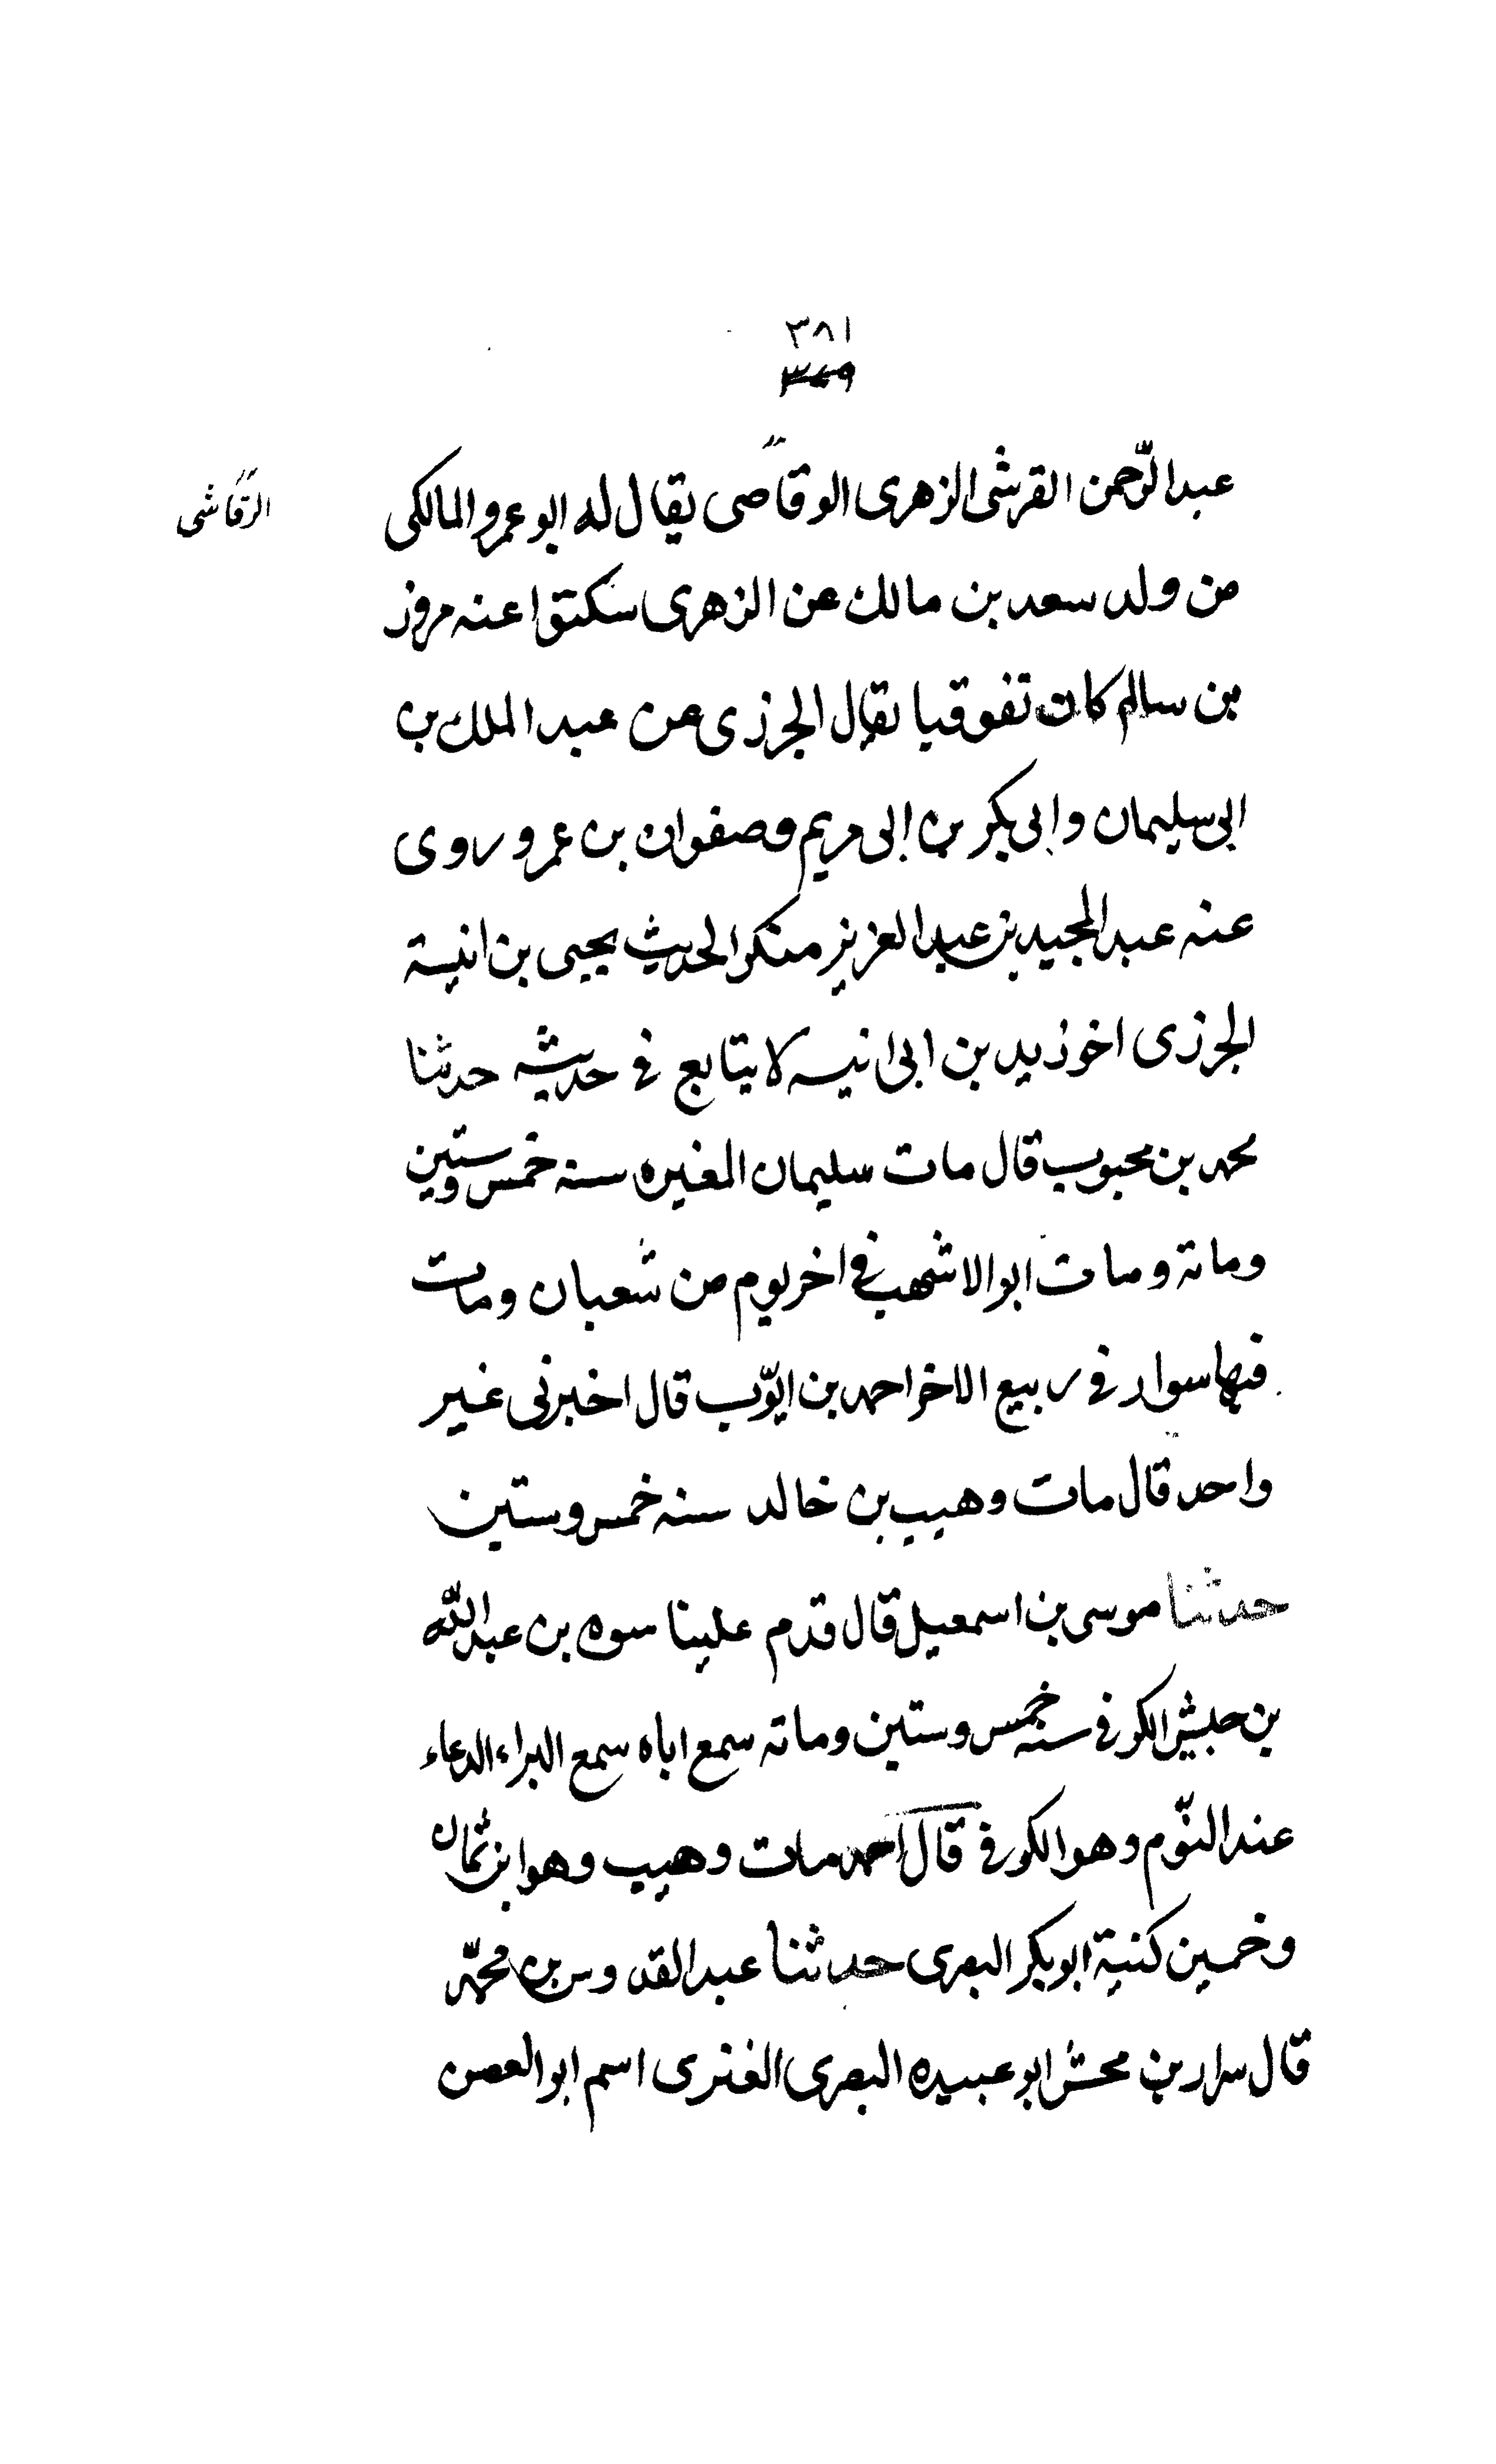 ٣٨١
٣٤٩
عبد الرّحمن القرشى الزهرى الوقاصى يقال له ابو عمرو المالكى
الرّقاشى
من ولد سعد بن مالك عن الزهرى سكتوا عنه مروز
بن سالم كان تفوقيا يقال الجرزى عن عبد الملك بن
ابى سليمان وابى بكر بن ابى مريم وصفوان بن عمرو روى
عنه عبد المجيد بن عبد العزيز منكر الحديث يحيى بن انيسة
الجرزى اخو زيد بن ابى انيسه لا يتابع فى حديثه حدثنا
محمد بن محبوب قال مات سليمان المغيره سنه خمس وستين
ومائة ومات ابو الاشهب فى اخر يوم من شعبان ومات
فيها سوار فى ربيع الاخر احمد بن ايّوب قال اخبرنى غير
واحد قال مات وهيب بن خالد سنه خمس وستين
حدثنا موسى بن اسمعيل قال قدم علينا سوه بن عبد اللّه
بن حبيش الكوفى سنه خمس وستين ومائه سمع اباه سمع البراء الدعاء
عند النّوم وهو الكوفى قال احمد مات وهيب وهو ابن ثمان
وخمسين كنية ابو بكر البصرى حدثنا عبد القدوس بن محمّد
قال سرار بن محشر ابو عبيده البصرى الغنرى اسم ابو الغصن